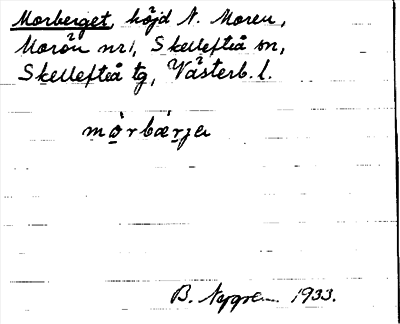 Morberget, höjd N. Moren,
Morön nr 1, Skellefteå sn,
Skellefteå tg, Västerb. l.
mòrbærjə
B. Nygren 1933.